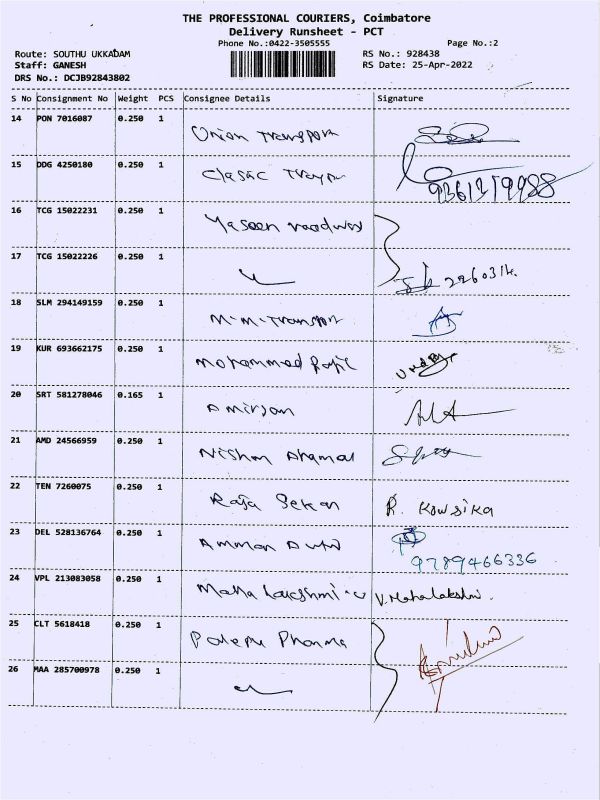 THE PROFESSIONAL COURIERS, Coimbatore
Delivery Runsheet - PCT
Phone No.:0422-3505555 Page No.:2
Route: SOUTHU UKKADAM RS No.: 928438
Staff: GANESH RS Date: 25-Apr-2022
DRS No.: DCJB92843802
S No Consignment No Weight PCS Consignee Details Signature
14 PON 7016087 0.250 1
Union Transport
15 DDG 4250180 0.250 1
Classic
9361319988
16 TCG 15022231 0.250 1
Yaseen roadways
17 TCG 15022226 0.250 1
18 SLM 294149159 0.250 1
M-M-Transport
19 KUR 693662175 0.250 1
Mohammed
20 SRT 581278046 0.165 1
Amirjan
21 AMD 24566959 0.250 1
22 TEN 7260075 0.250 1
Raja Sekar R. Kowsika
23 DEL 528136764 0.250 1
Amman Auto
9789466336
24 VPL 213083058 0.250 1
Maha Lakshmi-V V.Mahalakshmi.
25 CLT 5618418 0.250 1
Pharma
26 MAA 285700978 0.250 1